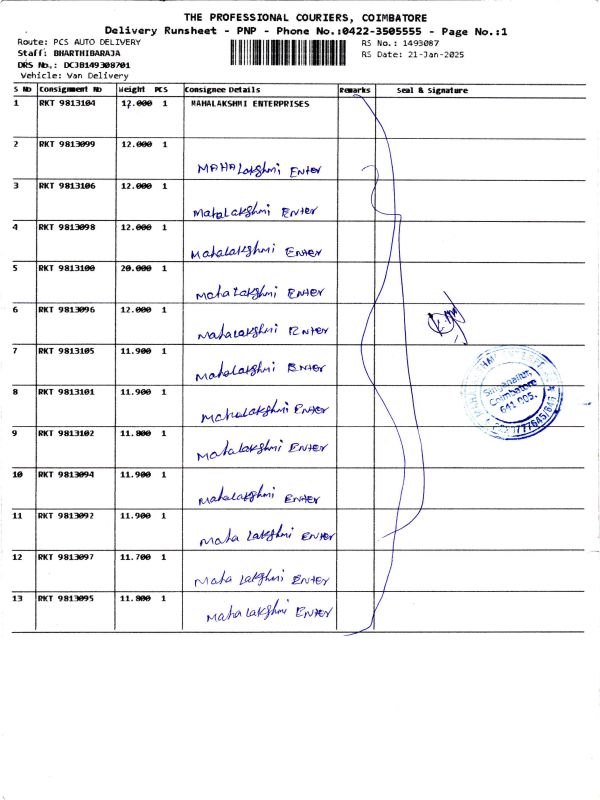 THE PROFESSIONAL COURIERS, COIMBATORE
Delivery Runsheet - PNP - Phone No.:0422-3505555 - Page No.:1
Route: PCS AUTO DELIVERY
RS No.: 1493087
Staff: BHARTHIBARAJA
RS Date: 21-Jan-2025
DRS No.: DCJB149308701
Vehicle: Van Delivery
S No Consignment No Weight PCS Consignee Details Remarks Seal & Signature
1 RKT 9813104 12.000 1 MAHALAKSHMI ENTERPRISES
2 RKT 9813099 12.000 1 MAHALakshmi Enter
3 RKT 9813106 12.000 1 MahaLakshmi Enter
4 RKT 9813098 12.000 1 Mahalakshmi Enter
5 RKT 9813100 20.000 1 Mahalakshmi Enter
6 RKT 9813096 12.000 1 Mahalakshmi Enter
7 RKT 9813105 11.900 1 Mahalakshmi Enter
8 RKT 9813101 11.900 1 Mahalakshmi Enter
9 RKT 9813102 11.800 1 Mahalakshmi Enter
10 RKT 9813094 11.900 1 Mahalakshmi Enter
11 RKT 9813092 11.900 1 Maha Lakshmi Enter
12 RKT 9813097 11.700 1 Maha Lakshmi Enter
13 RKT 9813095 11.800 1 Maha Lakshmi Enter
Singanallur,
Coimbatore
641 005.